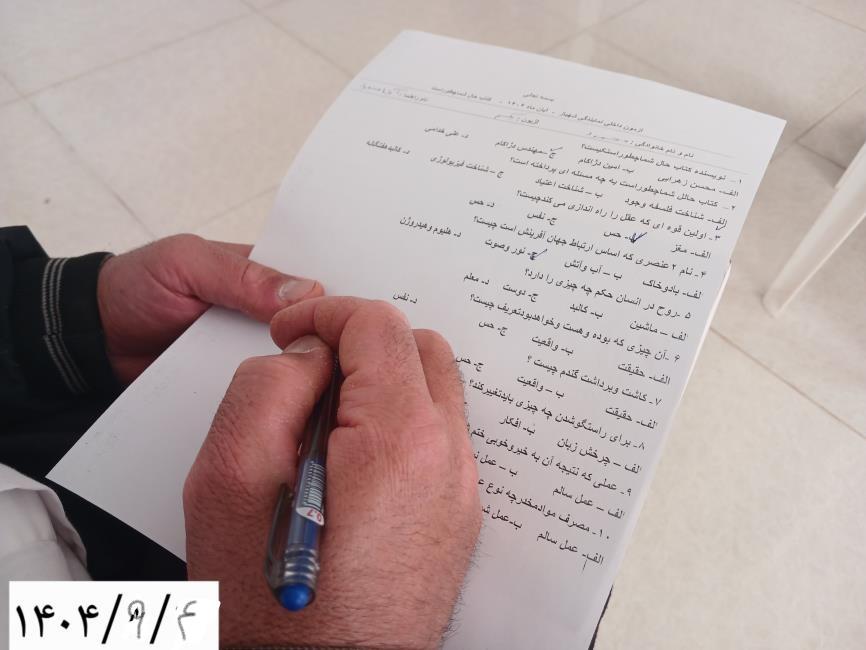 بسمه تعالی
آزمون داخلی نمایندگی شهریار - آبان ماه ۱۴۰۴ - کتاب حال شماچطوراست
نام و نام خانوادگی :
۱- نویسنده کتاب حال شماچطور استکیست؟
الف- محسن زهرایی ب- امین دژاکام ج- مهندس دژاکام د- علی خدامی
۲- کتاب حالل شماچطوراست به چه مسئله ای پرداخته است؟
الف- شناخت فلسفه وجود ب - شناخت اعتیاد ج - شناخت فیزیولوژی د- کالبدهفتگانه
۳- اولین قوه ای که عقل را راه اندازی می کندچیست؟
الف- مغز ب- حس ج- نفس د- حس
۴- نام ۲ عنصری که اساس ارتباط جهان آفرینش است چیست؟
لف- بادوخاک ب - آب وآتش ج- نور وصوت د- هلیوم وهیدروژن
۵ -روح در انسان حکم چه چیزی را دارد؟
الف - ماشین ب- کالبد ج- دوست د- معلم
۶ -آن چیزی که بوده وهست وخواهدبودتعریف چیست؟
الف- حقیقت ب- واقعیت ج- حس د- نفس
۷- کاشت وبرداشت گندم چیست ؟
الف- حقیقت ب – واقعیت ج- حس
۸- برای راستگوشدن چه چیزی بایدتغییرکند؟
الف – چرخش زبان ب- افکار
۹- عملی که نتیجه آن به خیروخوبی ختم
الف – عمل سالم ب – عمل
۱۰- مصرف موادمخدرچه نوع
الف- عمل سالم ب-عمل
۱۴۰۴/۹/۴